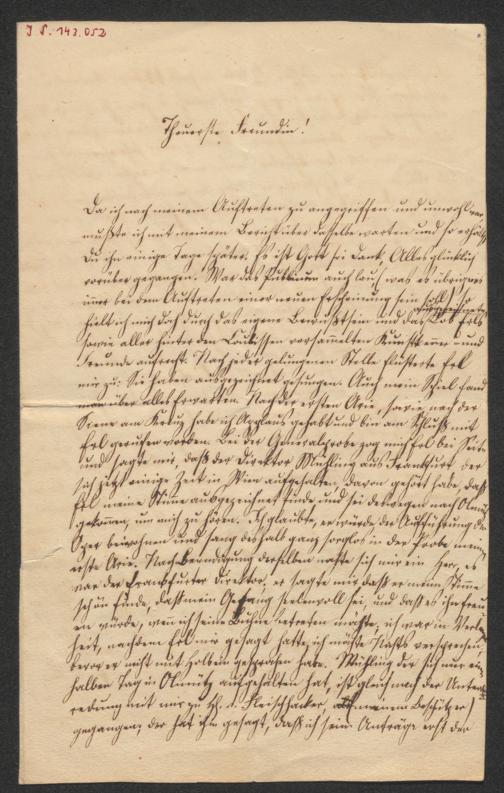 I. N. 143.052
Theuerste Freundin!
Da ich nach meinem Auftreten zu angegriffen und unwohl war
mußte ich mit meinem Bericht über dasselbe warten und so erhältst
Du ihn einige Tage später. Es ist Gott sei Dank, Alles glücklich
vorüber gegangen. War das Publicum auch lau, was es übrigens
immer bei dem Auftreten einer neuen Erscheinung sein soll, so
hielt ich mich doch durch das eigene Bewußtsein und das Lob Erls
sowie aller hinter den Coulissen versammelten Kunstkenner und
Freunde aufrecht. Nach jeder gelungenen Stelle flüsterte Erl
mir zu: Sie haben ausgezeichnet gesungen. Auch mein Spiel fand
man über alles Erwarten. Nach der ersten Arie, sowie nach der
Scene am Kreuz habe ich Applaus gehabt und bin am Schluß mit
Erl gerufen worden. Bei der Generalprobe zog mich Erl bei Seite
und sagte mir, daß der Direktor Mühling aus Frankfurt der
sich jetzt einige Zeit in Wien aufgehalten, davon gehört habe, daß
Erl meine Stimme ausgezeichnet finde, und sei deßwegen nach Olmütz
gekommen, um mich zu hören. Ich glaubte, er würde der Aufführung der
Oper beiwohnen und sang deshalb ganz sorglos in der Probe meine
erste Arie. Nach Beendigung derselben nahte sich mir ein Herr, es
war der Frankfurter Direktor, er sagte mir daß er meine Stimme
schön finde, daß mein Gesang seelenvoll sei, und daß es ihn freu-
en würde, wenn ich seine Bühne betreten möchte, ich war in Verlegen-
heit, nachdem Erl mir gesagt hatte, ich müßte Nichts versprechen,
bevor er nicht mit Holbein gesprochen habe. Mühling der sich nur ein
halben Tag in Olmütz aufgehalten hat, ist gleich nach der Unter-
redung mit mir zu H. v. Fleischhacker, meinem Beschützer
gegangen; der hat ihm gesagt, daß ich seine Anträge erst der